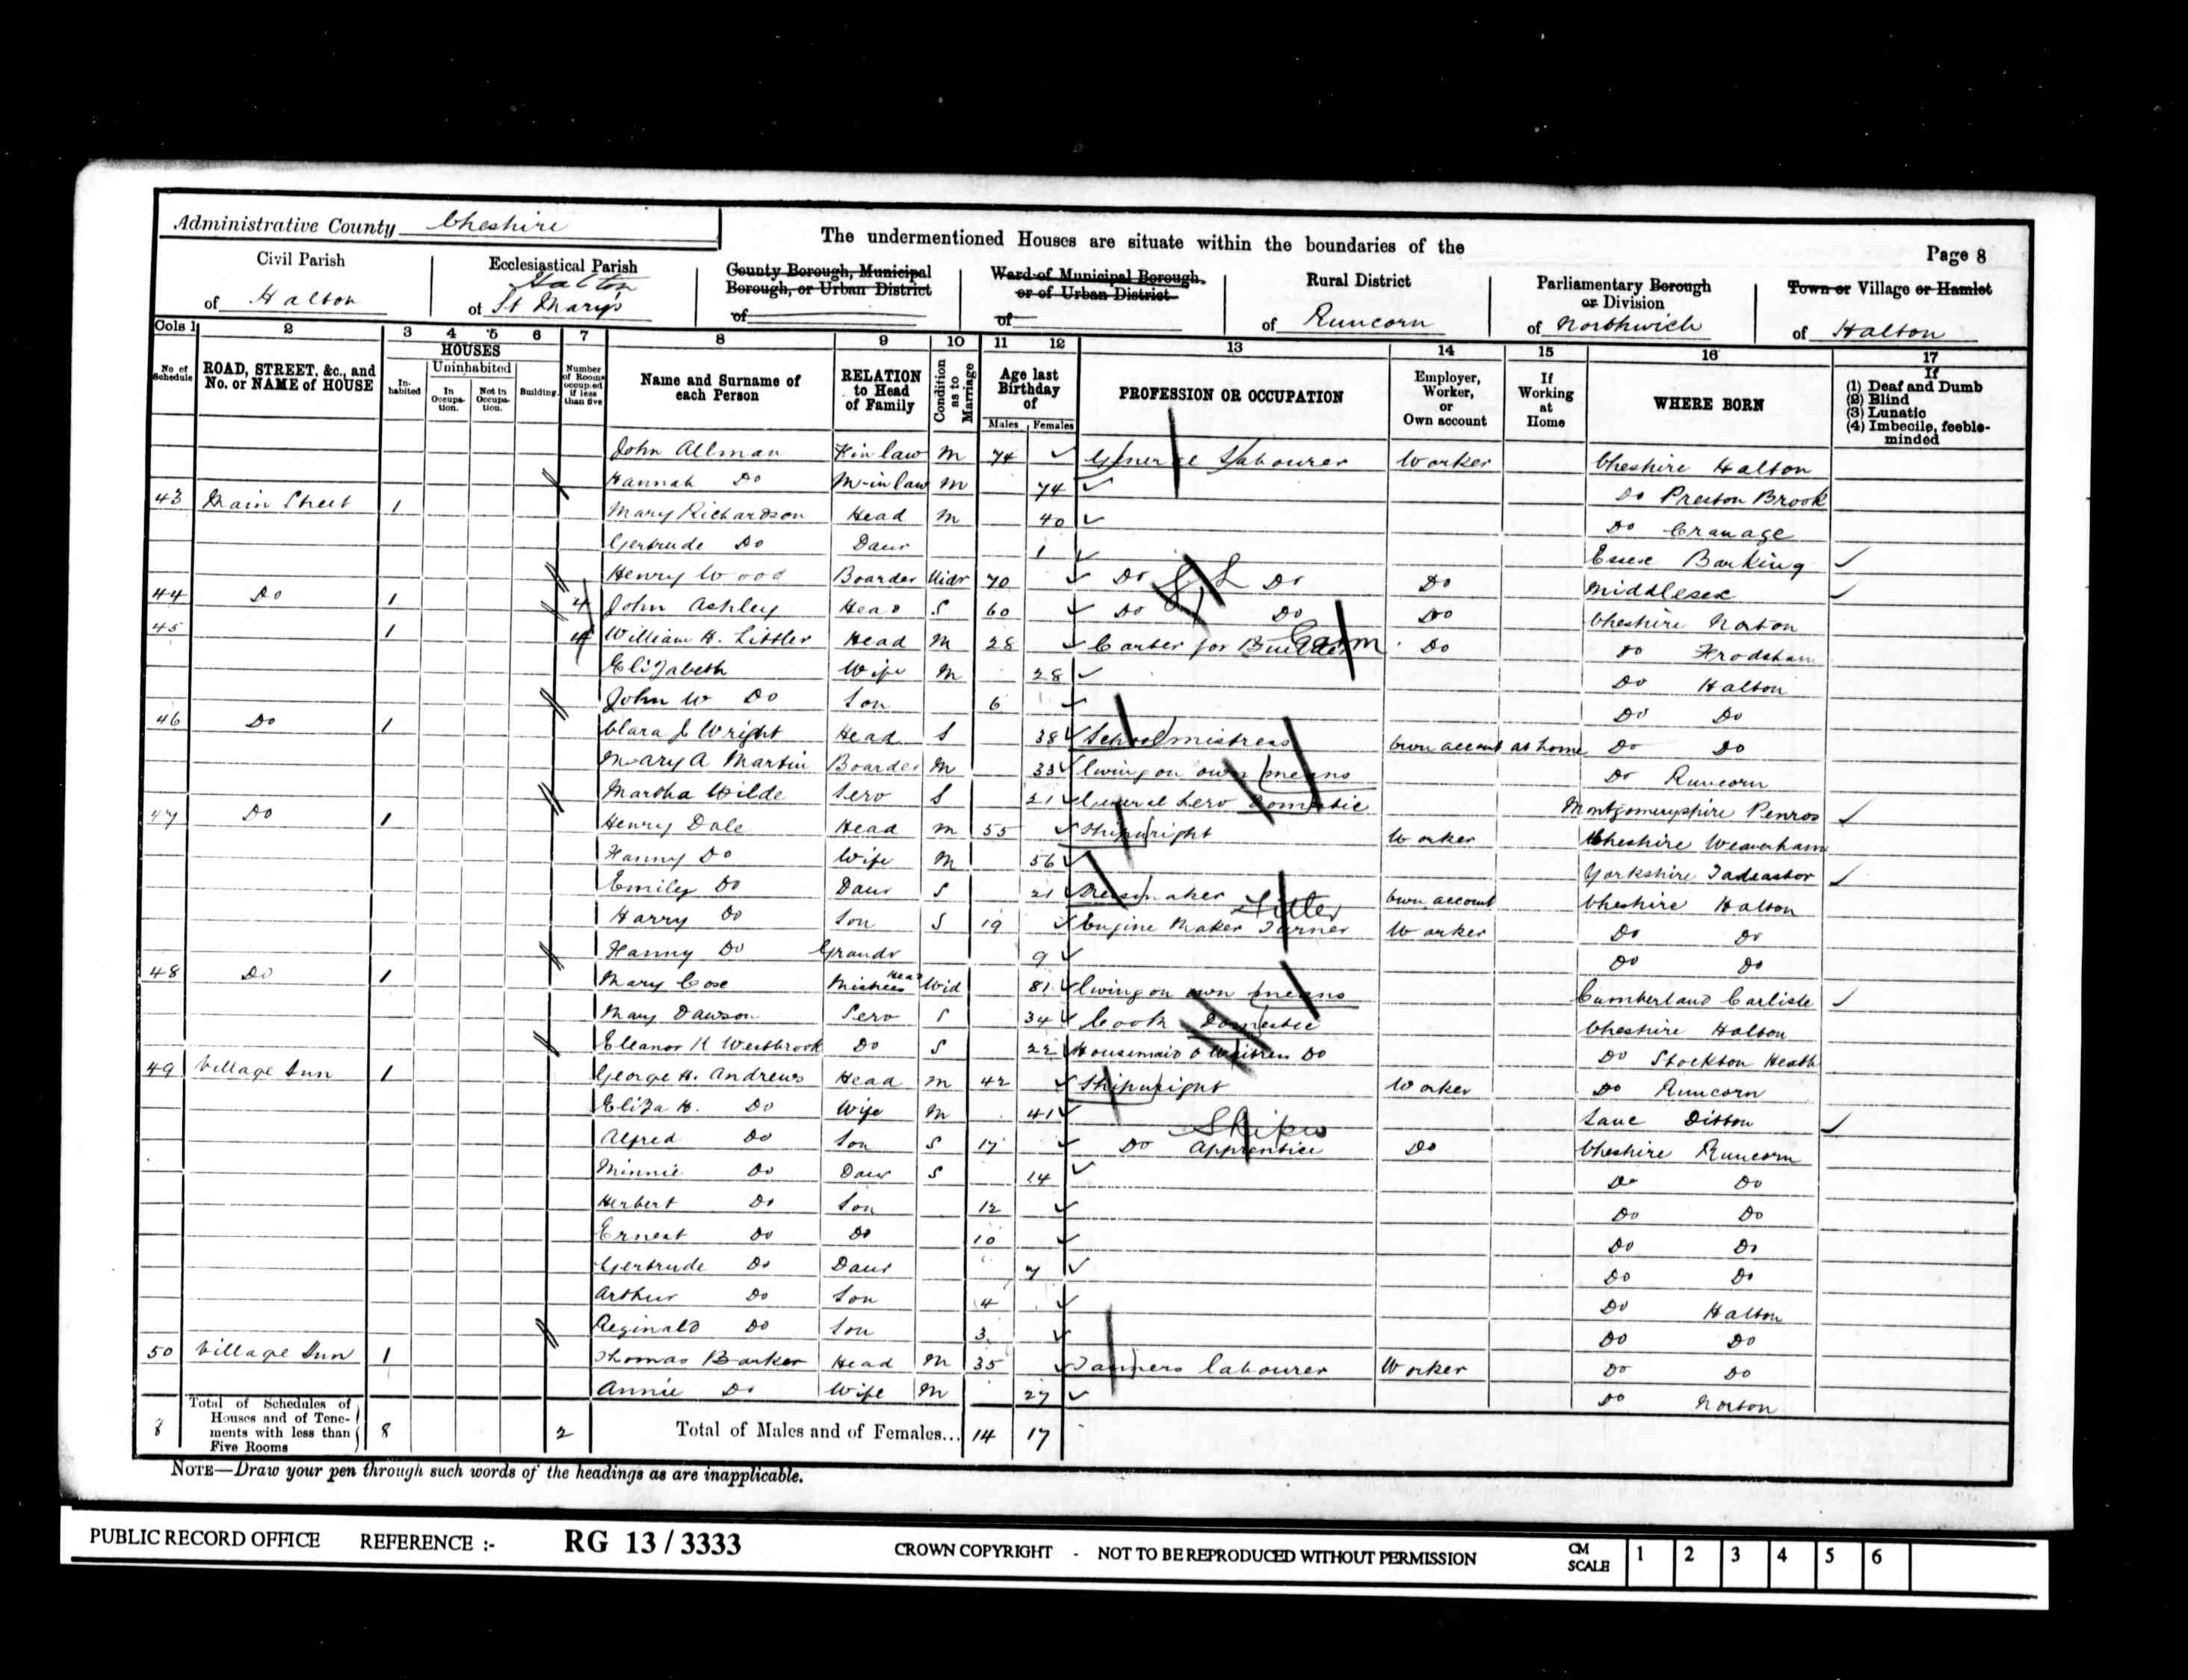 Administrative County Cheshire
The undermentioned Houses are situate within the boundaries of the
Page 8
Civil Parish of Halton
Ecclesiastical Parish of Halton St Mary's
County Borough, Municipal Borough, or Urban District of
Ward of Municipal Borough, or of Urban District of
Rural District of Runcorn
Parliamentary Borough or Division of Northwich
Town or Village or Hamlet of Halton
Cols 1 2 3 4 5 6 7 8 9 10 11 12 13 14 15 16 17
No of Schedule
ROAD, STREET, &c., and No. or NAME of HOUSE
HOUSES
Inhabited
Uninhabited
In Occupation.
Not in Occupation.
Building.
Number of Rooms occupied if less than five
Name and Surname of each Person
RELATION to Head of Family
Condition as to Marriage
Age last Birthday of
Males Females
PROFESSION OR OCCUPATION
Employer, Worker, or Own account
If Working at Home
WHERE BORN
If (1) Deaf and Dumb (2) Blind (3) Lunatic (4) Imbecile, feeble-minded
John Allman F in law M 74 General Labourer Worker Cheshire Halton
Hannah Do M-in law M 74 Do Preston Brook
43 Main Street 1 Mary Richardson Head M 40 Do Cranage
Gertrude Do Daur 1 Essex Barking
Henry Wood Boarder Widr 70 Do Do Do Middlesex
44 Do 1 4 John Ashley Head S 60 Do Do Do Cheshire Norton
45 1 4 William H. Littler Head M 28 Carter for Builder Do Do Frodsham
Elizabeth Wife M 28 Do Halton
John W Do Son 6 Do Do
46 Do 1 Clara J Wright Head S 38 Schoolmistress Own account at home Do Do
Mary A Martin Boarder M 33 living on own means Do Runcorn
Martha Wilde Serv S 21 General Serv Domestic Montgomeryshire Penros
47 Do 1 Henry Dale Head M 55 Shipwright Worker Cheshire Weaverham
Fanny Do Wife M 56 Yorkshire Tadcaster
Emily Do Daur S 21 Dressmaker Own account Cheshire Halton
Harry Do Son S 19 Engine Maker Turner Fitter Worker Do Do
Fanny Do Grandr 9 Do Do
48 Do 1 Mary Cose Mistress Head Wid 81 living on own means Cumberland Carlisle
Mary Dawson Serv S 34 Cook Domestic Cheshire Halton
Eleanor K Westbrook Do S 22 Housemaid & Waitress Do Do Stockton Heath
49 Village Inn 1 George H. Andrews Head M 42 Shipwright Worker Do Runcorn
Eliza H. Do Wife M 41 Lanc Ditton
Alfred Do Son S 17 Do Apprentice Shipw Do Cheshire Runcorn
Minnie Do Daur S 14 Do Do
Herbert Do Son 12 Do Do
Ernest Do Do 10 Do Do
Gertrude Do Daur 7 Do Do
Arthur Do Son 4 Do Halton
Reginald Do Son 3 Do Do
50 Village Inn 1 Thomas Barker Head M 35 Tanners labourer Worker Do Do
Annie Do Wife M 27 Do Norton
8 Total of Schedules of Houses and of Tenements with less than Five Rooms 8 2 Total of Males and of Females... 14 17
NOTE—Draw your pen through such words of the headings as are inapplicable.
PUBLIC RECORD OFFICE REFERENCE :- RG 13 / 3333 CROWN COPYRIGHT - NOT TO BE REPRODUCED WITHOUT PERMISSION CM SCALE 1 2 3 4 5 6